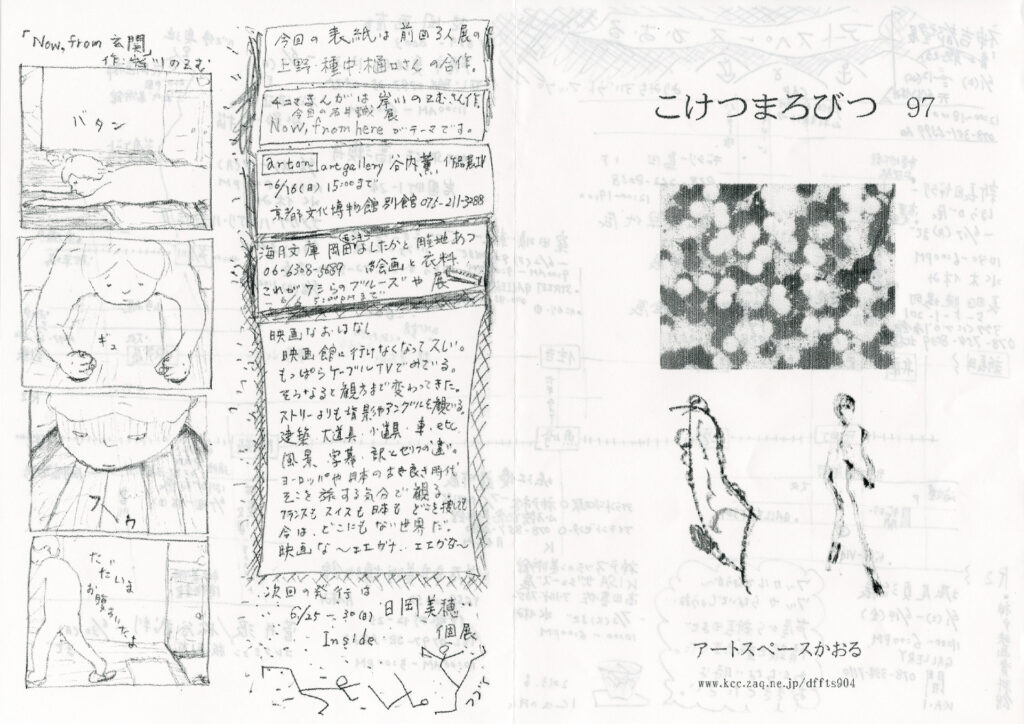 「Now, from 玄関」
作・岸川のぞむ
バタン
ギュ
フーウ
ただいま
今回の表紙は前回3人展の
上野・種中・樋口さんの合作。
4コマまんがは岸川のぞむさん作
Now, from here がテーマです。
arton art gallery 谷内薫 作品展
～6/16(日) 15:00まで
京都文化博物館 別館 075-211-3988
海月文庫
06-6308-3689 は絵画と衣料
これが7ミらのブルーズや 展
～6/6 5:00pmまで
映画なおはなし
映画館に行けなくなって久しい。
もっぱらケーブルTVでみている。
そうなると観方まで変わってきた。
ストリーよりも背景やアングルを観ている。
建築 大道具 小道具・車・etc.
風景 字幕・訳とセリフの違い。
ヨーロッパや日本の古き良き時代
そこを旅する気分で観る。
フランスも スイスも 日本も どこを探しても
今は、どこにもない世界だ。
映画な～エエがナ・・エエがな～
次回の発行は
6/25～30(日) 日岡美穂
Inside 個展
こけつまろびつ 97
アートスペースかおる
www.kcc.zaq.ne.jp/dffts904